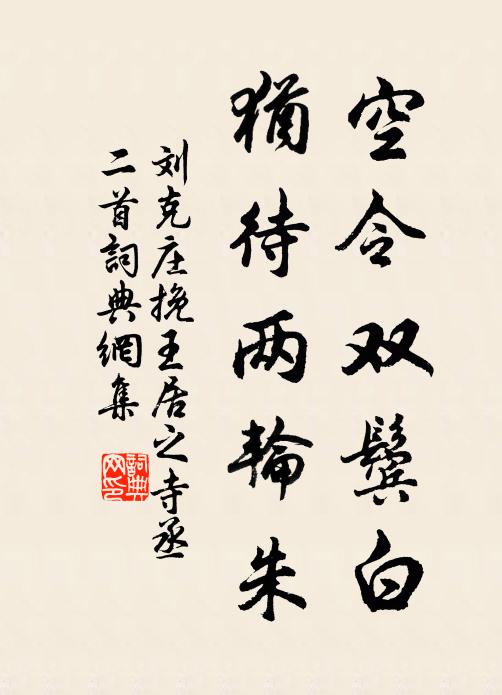 空令双鬓白
犹待两轮朱
刘克庄挽王居之寺丞
二首词典網集
詞典网印